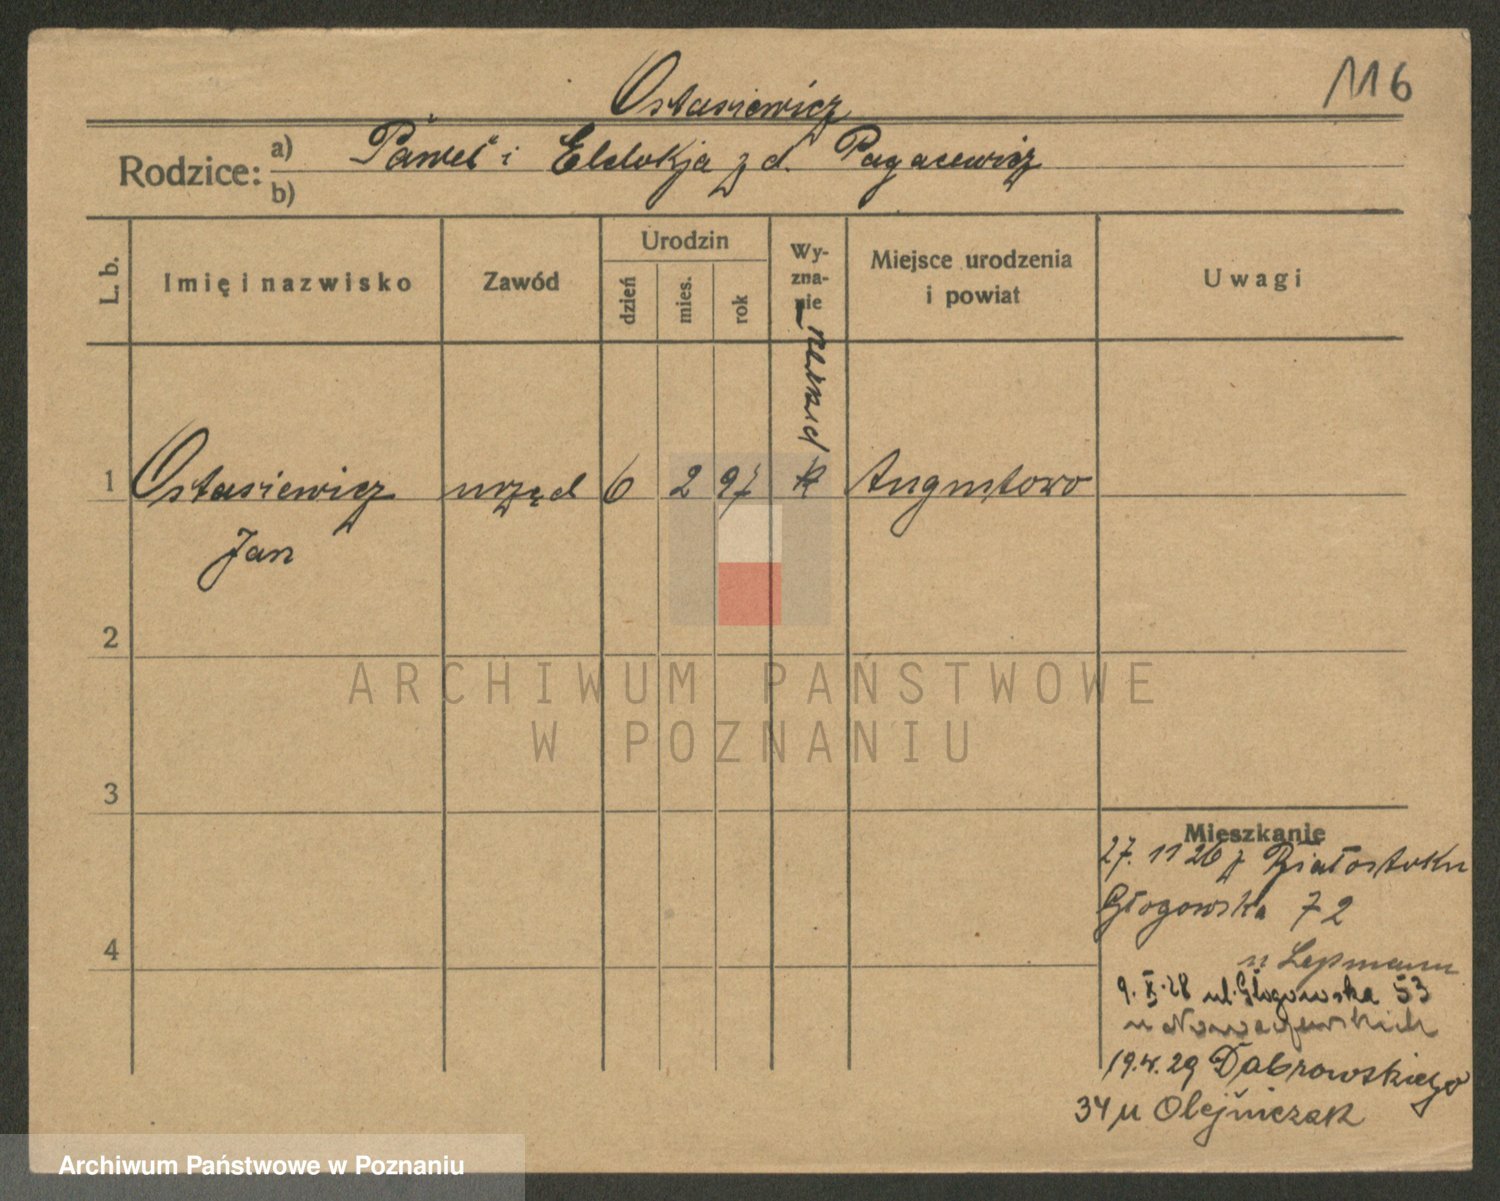 116
Ostasiewicz
Rodzice: a) Paweł i Eldokja z d. Pagacewicz
b)
L. b.
Imię i nazwisko
Zawód
Urodzin
dzień
mies.
rok
Wy-
zna-
nie
Miejsce urodzenia
i powiat
Uwagi
1 Ostasiewicz urzęd 6 2 97 Augustowo
Jan
2
ARCHIWUM PAŃSTWOWE
W POZNANIU
3
4
Mieszkanie
27. 11 26 z Białostoku
Głogowska 72
u Lepmann
9. X. 28 ul. Głogowska 53
u
19. 29 Dąbrowskiego
34 u Olejniczak
Archiwum Państwowe w Poznaniu